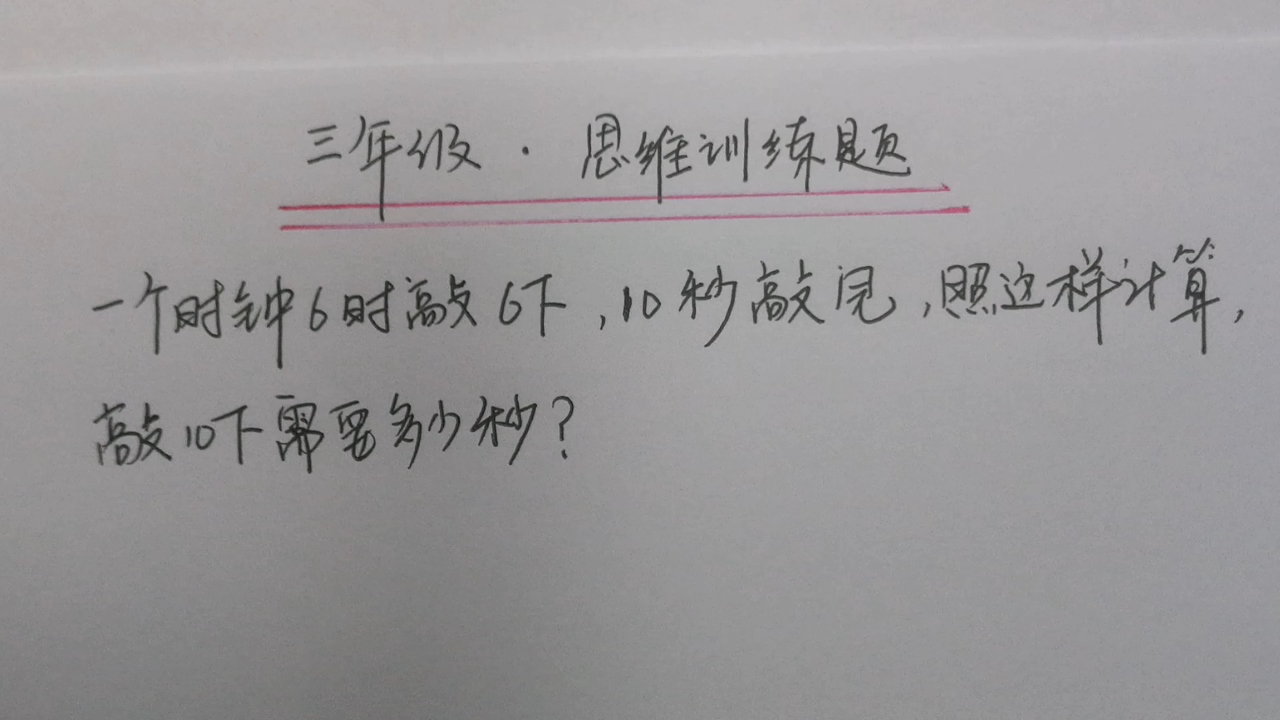 三年级·思维训练题
一个时钟6时敲6下,10秒敲完,照这样计算,
敲10下需要多少秒?